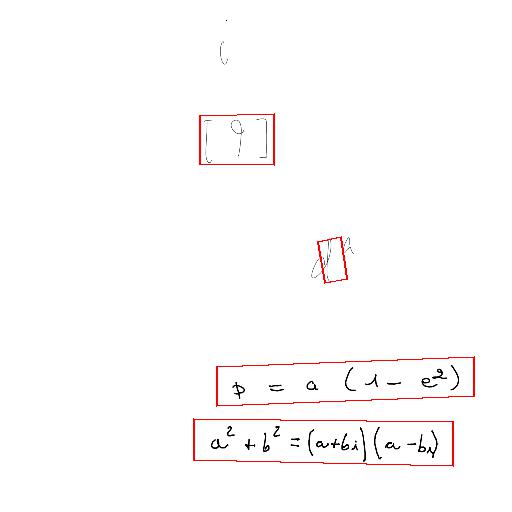 i
[9]
p = a (1 - e²)
a² + b² = (a+bi)(a-bi)